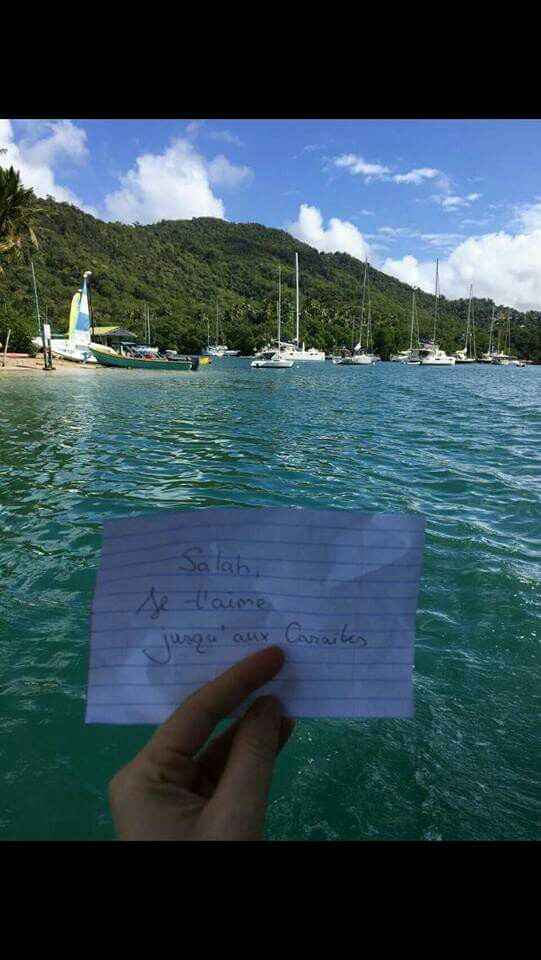 Salah,
Je t'aime
jusqu'aux Caraïbes